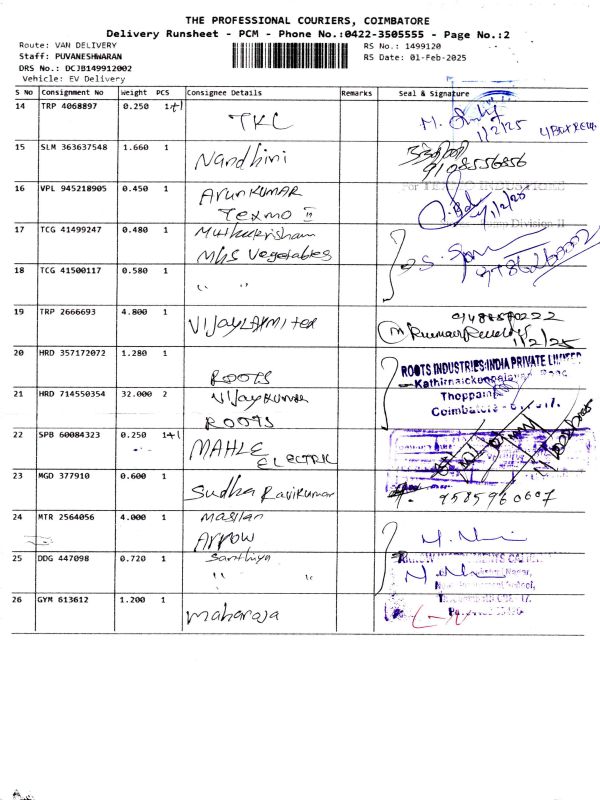 THE PROFESSIONAL COURIERS, COIMBATORE
Delivery Runsheet - PCM - Phone No.:0422-3505555 - Page No.:2
Route: VAN DELIVERY
RS No.: 1499120
Staff: PUVANESHWARAN
RS Date: 01-Feb-2025
DRS No.: DCJB149912002
Vehicle: EV Delivery
S No Consignment No Weight PCS Consignee Details Remarks Seal & Signature
14 TRP 4068897 0.250 1+1 TKC 1/2/25
15 SLM 363637548 1.660 1 Nandhini 9108556856
16 VPL 945218905 0.450 1 ArunKUMAR
Texmo II 1/2/25
Division II
17 TCG 41499247 0.480 1 Muthukrisham
Mks Vegetables
18 TCG 41500117 0.580 1 " "
19 TRP 2666693 4.800 1 VIJAYLAXMI Tex
1/2/25
20 HRD 357172072 1.280 1 ROOTS
ROOTS INDUSTRIES INDIA PRIVATE LIMITED
21 HRD 714550354 32.000 2 VIJayKUMAR
ROOTS
Thoppam
Coimbatore
22 SPB 60084323 0.250 1+1 MAHLE
ELECTRIC
23 MGD 377910 0.600 1 Sudha Ravikumar 9585960607
24 MTR 2564056 4.000 1
Arrow
25 DDG 447098 0.720 1 Santhiya
" "
26 GYM 613612 1.200 1 maharaja